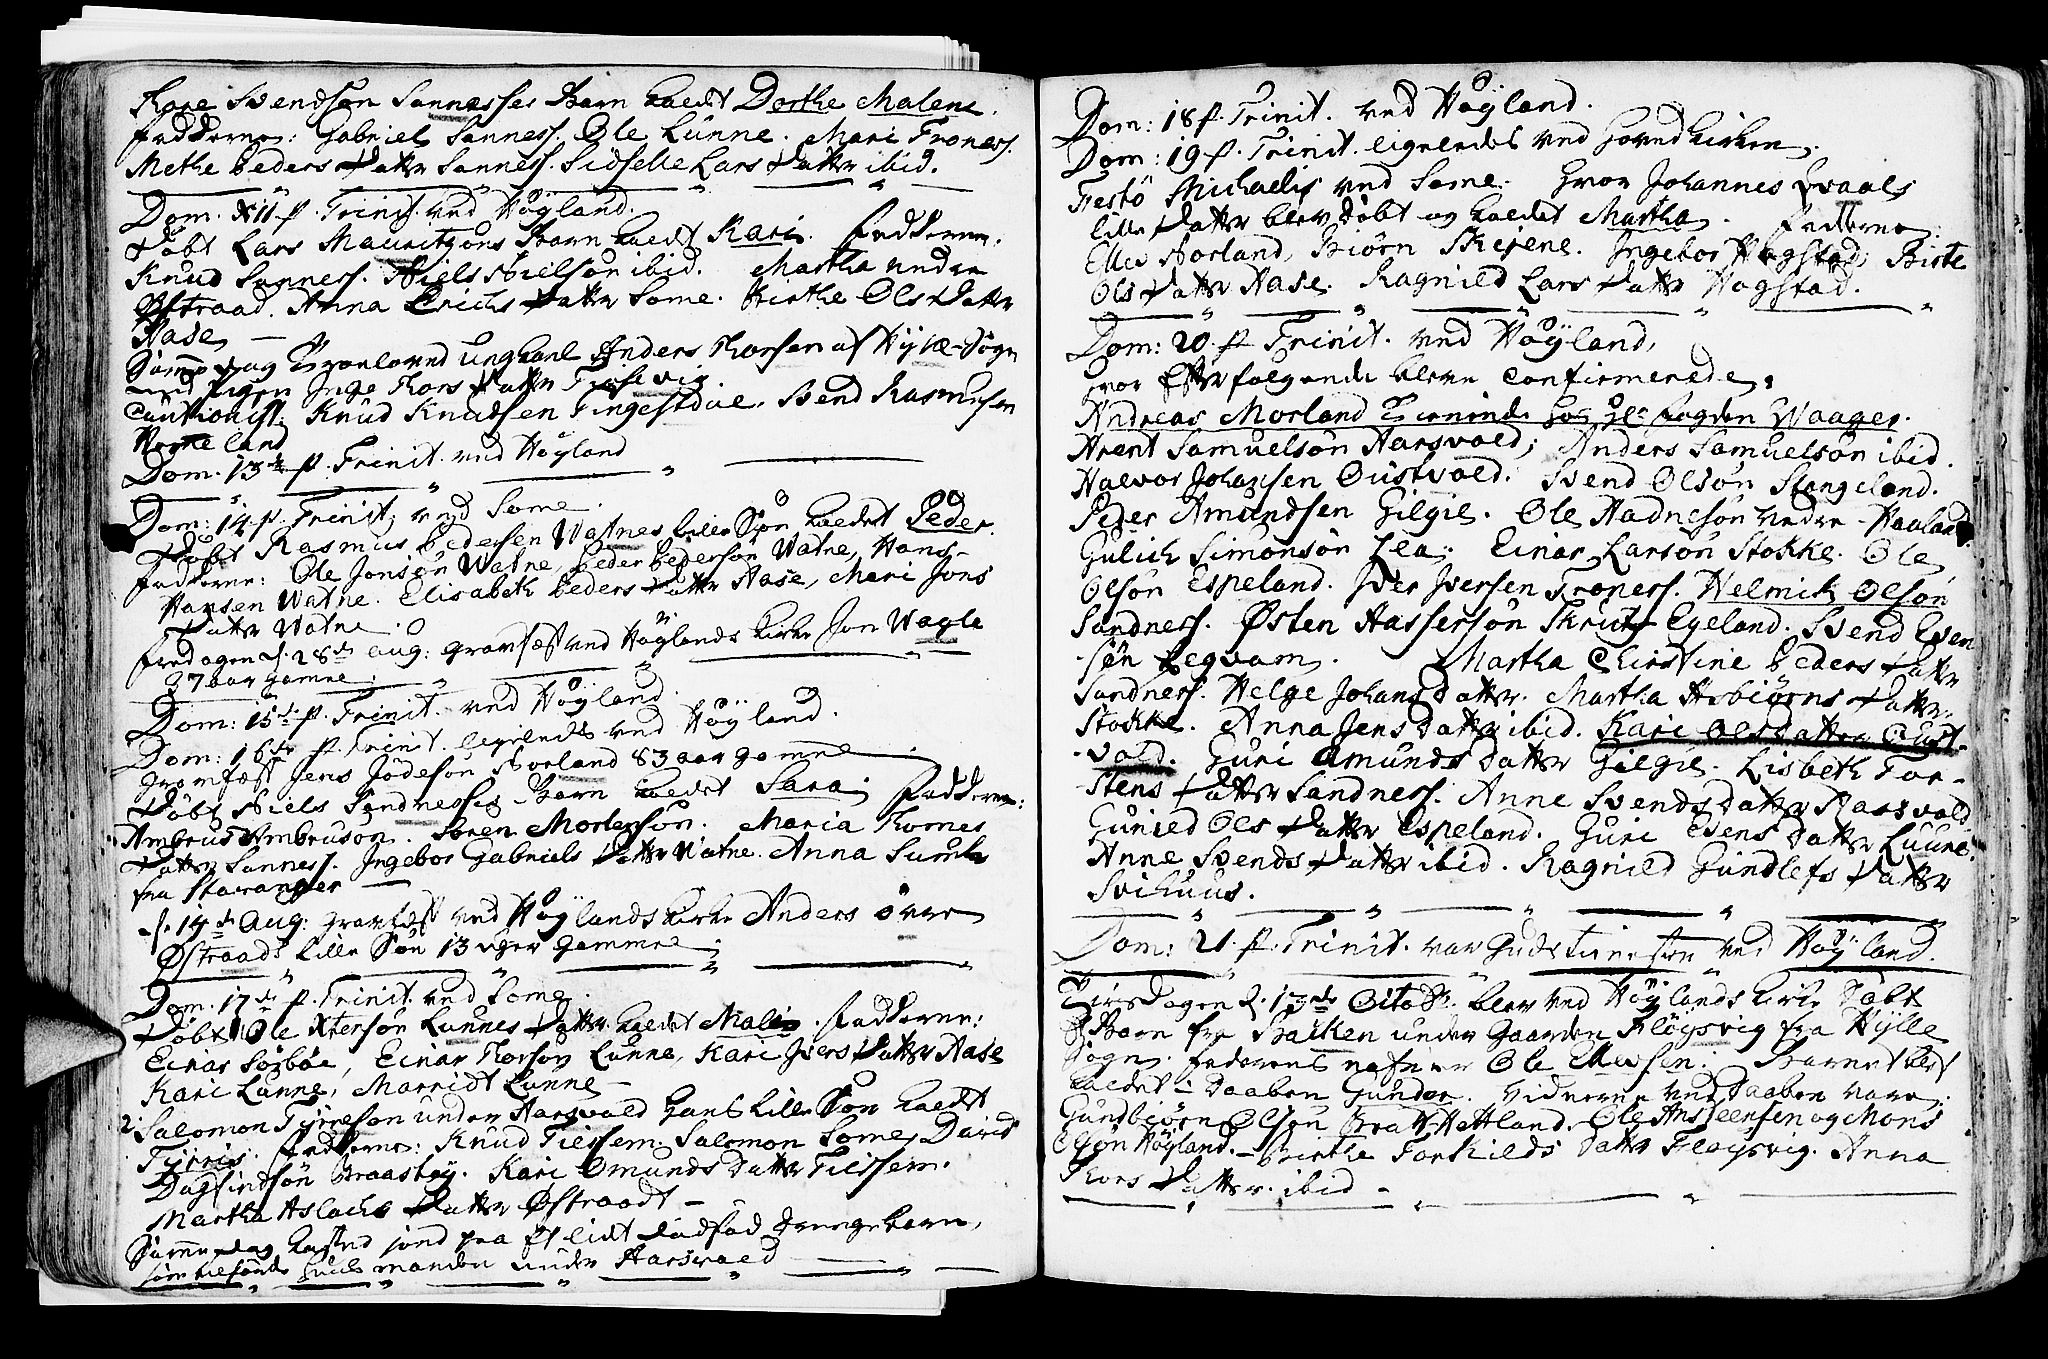 Tore Svendsøn Sannesses Barn kaldt Dorthe Malene.
Fadderne: Gabriel Sanness. Ole Lunne. Mari Troness.
Methe Peders Datter Sanness. Sidselle Lars Datter ibid.
Dom. XII p. Trinit. ved Høyland.
Døbt Lars Mauritzøns Barn kaldt Kari. Fadderne:
Knud Sanness. Niels Nielsøn ibid. Martha nedre
Østraad. Anna Erichs Datter Some. Birthe Ols Datter
Aase
Samme dag Troloved ungkarl Anders Thorsen af Hylle-Sogn
med Pigen Inge Thors Datter
Cautionist: Knud Knudsen Tingestdae. Svend Rasmusen
Hommeland
Dom. 13de p. Trinit. ved Høyland
Dom: 14 p. Trinit; ved Some.
Døbt Rasmus Pedersen Watnes lille Søn kaldet Peder.
Fadderne: Ole Jonsøn Watne, Peder Pedersøn Watne, Hans
Hansen Watne. Elisabeth Peders Datter Aase, Mari Jons
Datter Watne.
Fredagen d. 28de Aug: gravfæst ved Høylands Kirke Jon Wagle
37 aar gamme
Dom: 15de p. Trinit. ved Høyland.
Dom: 16de p. Trinit. ligeledes ved Høyland.
gravfæst Jens Jødesøn Norland 83 aar gamme
Døbt Niels Sandnesses Barn kaldet Sara; Fadderne:
Ambrus Ambrusøn. Søren Mortensøn. Maria Thomes
Datter Sanness. Ingebor Gabriels Datter Watne. Anna
fra Stavanger
d. 14de Aug: gravfæst ved Høylands Kirke Anders øvre
Østraads lille Søn 13 uger gamme
Dom. 17de p. Trinit. ved Some.
Døbt Ole Lunnes Datter kaldet Malin. Fadderne:
Einar Sørbøe, Einar Thorsøn Lunne, Kari Ivers Datter Aase
Kari Lunne, Marridt Lunne
2. Salomon under Aarsvald Hans lille Søn kaldt
Tjøris. Fadderne: Knud Tiessem. Salomon Some, David
Dagfindsøn Braastøy. Kari Omunds Datter Tiessem.
Martha Aslachs Datter Østraadt
Samme dag kasted jord paa et lidt dødfød Drengebarn,
som tilhørde manden under Aarsvald
Dom: 18 p. Trinit. ved Høyland.
Dom: 19 p. Trinit. ligeledes ved Hovedkirken.
Festo Michaelis ved Some. hvor Johannes Qvaals
lille Datter blev døbt og kaldet Martha. Fadderne:
Elles Norland, Biørn Skejene. Ingebor Hogstad, Birte
Ols Datter Aase. Ragnild Lars Datter Hogstad.
Dom: 20 p. Trinit. ved Høyland,
hvor efterfølgende bleve Confirmerede:
Andreas Morland tienende hos Hr. Fogden Waager.
Arent Samuelsøn Aarsvold; Anders Samuelsøn ibid.
Halvor Johansen Oustvold. Svend Olsøn Stangeland.
Peder Amundsen Gilgie. Ole Aadnesøn nedre-Haaland.
Gulich Simonsøn Lea. Einar Larsøn Stokke. Ole
Olsøn Espeland. Iver Iversen Troness. Helmik Olsøn
Sandness. Østen Hassersøn Skrutz Egeland. Svend Even
-søn Legvam. Martha Christine Peders Datter
Sandness. Helge Johans Datter. Martha Asbiørns Datter
Stokke. Anna Jens Datter ibid. Kari Olsdatter Oust-
-vold. Guri Omunds Datter Gilgie. Lisbeth Tor-
-stens Datter Sandness. Anne Svends Datter Aarsvold
Gunild Ols Datter Espeland. Guri Evens Datter Luure.
Anne Svends Datter ibid. Ragnild Gundlefs Datter
Svihuus.
Dom: 21 p. Trinit. var Gudstienesten ved Høyland.
Tirsdagen d. 13de Octobr. blev ved Høylands Kirke døbt
Barn fra Bakken under Gaarden Fløysvig fra Hylle
Sogn. Faderens nafn er Ole Ellevsen. Barnet blef
kaldet i Daaben Gunder. Vidnerne ved Daaben vare:
Gundbiørn Olsøn Bratt-Hetland. Ole Ansteensen og Mons
Olsøn Høyland. Birthe Torkilds Datter Fløysvig. Anna
Thors Datter ibid